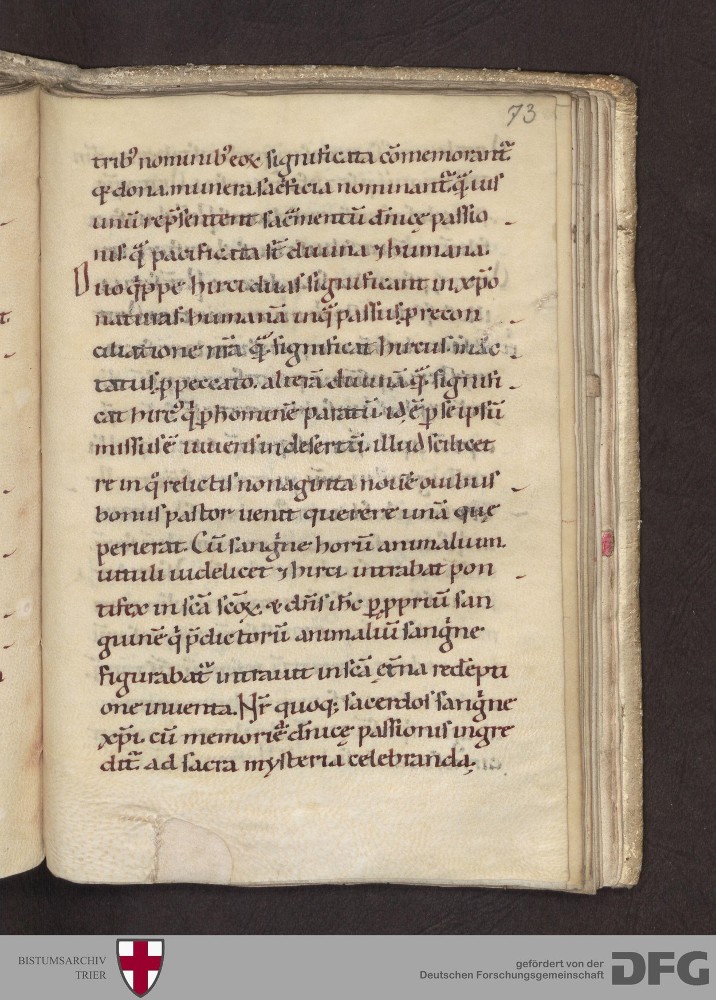 73
tribꝰ nominibꝰ eoꝝ significata cōmemorant᷑
qͥ dona. munera. sacͥficia nominant᷑. qͣ uis
unū repͤsentent sacͣmentū dn̄icę passio
nis. qͣ pacificata st̄ diuina ⁊ humana.
Duo qͥppe hirci duas significant in xp̄o
naturas. humanā in qͣ passus. p recon
ciliatione nr̄a qͣ significat hircus. mac
tatus. p peccato. alterā diuinā qͣ significi
cat hircꝰ qͥ p hominē paratū. id ē p se ipsū
missus ē uiuens in desertū. illud scilicet
re in qͦ relictis nonaginta nouē ouibus
bonus pastor uenit querere unā quę
perierat. Cū sangͥne horū animalium.
uituli uidelicet ⁊ hirci intrabat pon
tifex in sc̄a sc̄oꝝ. & dn̄s ih̄c ꝑ ppriū san
guinē qͥ p̄dictorū animaliū sangͥne
figurabat᷑ intrauit in sc̄a ęt̄na redēpti
one inuenta. Nr̄ quoq; sacerdos sangͥne
xp̄i. cū memoriē dn̄icę passionis ingre
dit᷑ ad sacra mysteria celebranda.
BISTUMSARCHIV
TRIER
gefördert von der
Deutschen Forschungsgemeinschaft
DFG